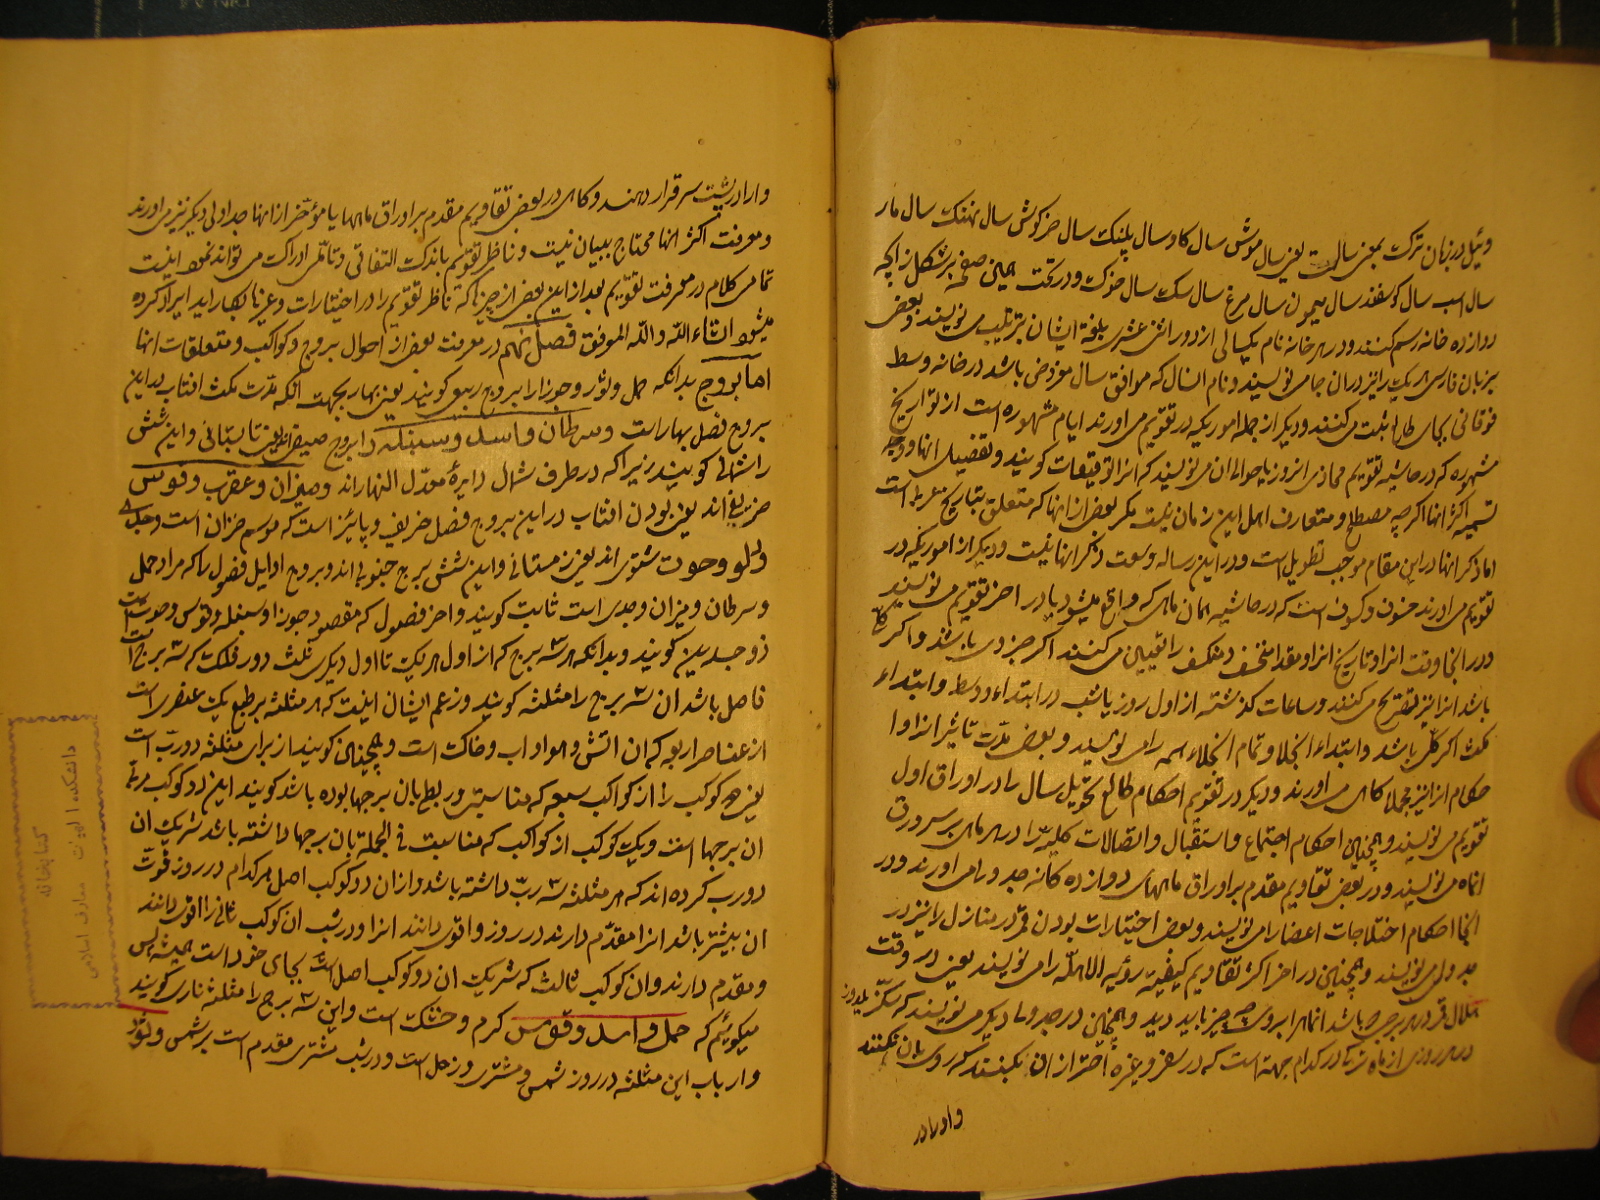 وئیل در زبان ترک بمعنی سالست یعنی سال موش سال کاو سال پلنک سال خرکوش سال نهنک سال مار
سال اسب سال کوسفند سال میمون سال مرغ سال سک سال خوک و در تحت همین صفحه بر شکل زایچه
دوازده خانه رسم کنند و در هر خانه نام یکسالی از دور اثنی عشری بلغة ایشان بترتیب می نویسند و بعض
بزبان فارسی هر یک را نیز در ان جا می نویسند و نام انسال که موافق سال مفروض باشد در خانه وسط
فوقانی بجای طالع ثبت می کنند و دیکر از جمله اموریکه در تقویم می اورند ایام مشهوره است از تواریخ
مشهوره که در حاشیه تقویم محاذی انروز یا حوالی ان می نویسند که انرا توقیعات کویند و تفصیل انها و وجه
تسمیه اکثر انها اکرچه مصطلح و متعارف اهل این زمان نیست مکر بعض از انها که متعلق بتاریخ عربیه است
اما ذکر انها در این مقام موجب تطویل است و در این رساله وسعت ذکر انها نیست و دیکر از اموریکه در
تقویم می اورند خسوف و کسوف است که در حاشیه همان ماهی که واقع میشود یا در اخر تقویم می نویسند
و در انجا وقت انرا و تاریخ انرا و مقدار منخسف و منکسف را تعیین می کنند اکر جزوی باشد و اکر کلی
باشد انرا نیز تصریح می کنند و ساعات کذشته از اول روز یا شب در ابتداء و وسط و ابتداء
مکث اکر کلی باشد و ابتداء انجلا و تمام انجلاء همه را می نویسند و بعض مدّت تاثیر انرا و ا
حکام انرا نیز مجملا کاهی می اورند و دیکر در تقویم احکام طالع تحویل سال را در اوراق اول
تقویم می نویسند و همچنین احکام اجتماع و استقبال و اتصالات کلیه را در هر ماهی بر سر ورق
انماه می نویسند و در بعض تقاویم مقدم بر اوراق ماههای دوازده کانه جدولی می اورند و در
انجا احکام اختلاجات اعضا را می نویسند و بعض اختیارات بودن قمر در منازل را نیز در
جدولی می نویسند و همچنین در اخر اکثر تقاویم کیفیه رؤیه الاهله را می نویسند یعنی در وقت
هلال قمر در هر برجی باشد انماه را بر وی چه چیز باید دید و همچنین در جدولی دیکر می نویسند که سکز یلدوز
در هر روزی از ماه ترکی در کدام جهة است که در سفر و غیره احتراز از ان بکنند که روی بان نکنند
و او را در
و او را در پشت سر قرار دهند و کاهی در بعض تقاویم مقدم بر اوراق ماهها یا مؤخر از انها جداولی دیکر نیز می اورند
و معرفت اکثر انها محتاج ببیان نیست و ناظر تقویم باندک التفاتی و تأمّلی ادراک می تواند نمود اینست
تمامی کلام در معرفت تقویم بعد از این بعض از چیزها که ناظر تقویم را در اختیارات و غیرها بکار اید ایراد کرده
میشود انشاء اللّه واللّه الموفق فصل نهم در معرفت بعض از احوال بروج و کواکب و متعلقات انها
اما بروج بدانکه حمل و ثور و جوزا را بروج ربیعی کویند یعنی بهار بجهت انکه مدّت مکث افتاب در این
بروج فصل بهار است و سرطان و اسد و سنبله را بروج صیفی یعنی تابستانی و این شش
را شمالی کویند زیرا که در طرف شمال دایرهٔ معدّل النهار اند و میزان و عقرب و قوس
خریفی اند یعنی بودن افتاب در این بروج فصل خریف و پائیز است که موسم خزان است و جدی
و دلو و حوت شتوی اند یعنی زمستانی و این شش برج جنوبی اند و بروج اوایل فصول را که مراد حمل
و سرطان و میزان و جدی است ثابت کویند و اخر فصول که مقصود جوزا و سنبله و قوس و حوت است
ذو جسدین کویند و بدانکه هر سه برج که از اول هر یک تا اول دیکری ثلث دور فلک که سه برج است
فاصل باشد ان سه برج را مثلثه کویند و زعم ایشان اینست که هر مثلثه بر طبع یک عنصری است
از عناصر اربعه که ان اتش و هوا و اب و خاک است و همچنین کویند از برای مثلثه دو ربّ است
یعنی دو کوکب را از کواکب سبعه که مناسبتی و ربطی بان برجها بوده باشد کویند این دو کوکب مربی
ان برجها است و یک کوکب از کواکب که مناسبت فی الجملة بان برجها داشته باشد شریک ان
دو رب کرده اند که هر مثلثه سه ربّ داشته باشد و از ان دو کوکب اصل هر کدام در روز قوّت
ان بیشتر باشد انرا مقدّم دارند در روز و اقوی دانند انرا و در شب ان کوکب ثانی را اقوی دانند
و مقدم دارند و ان کوکب ثالث که شریک ان دو کوکب اصل است بجای خود است همیشه پس
میکوئیم که حمل و اسد و قوس کرم و خشک است و این سه برج را مثلثه ناری کویند
و ارباب این مثلثه در روز شمس و مشتری و زحل است و در شب مشتری مقدم است بر شمس و ثور
کتابخانه
دانشکده الهیات و معارف اسلامی